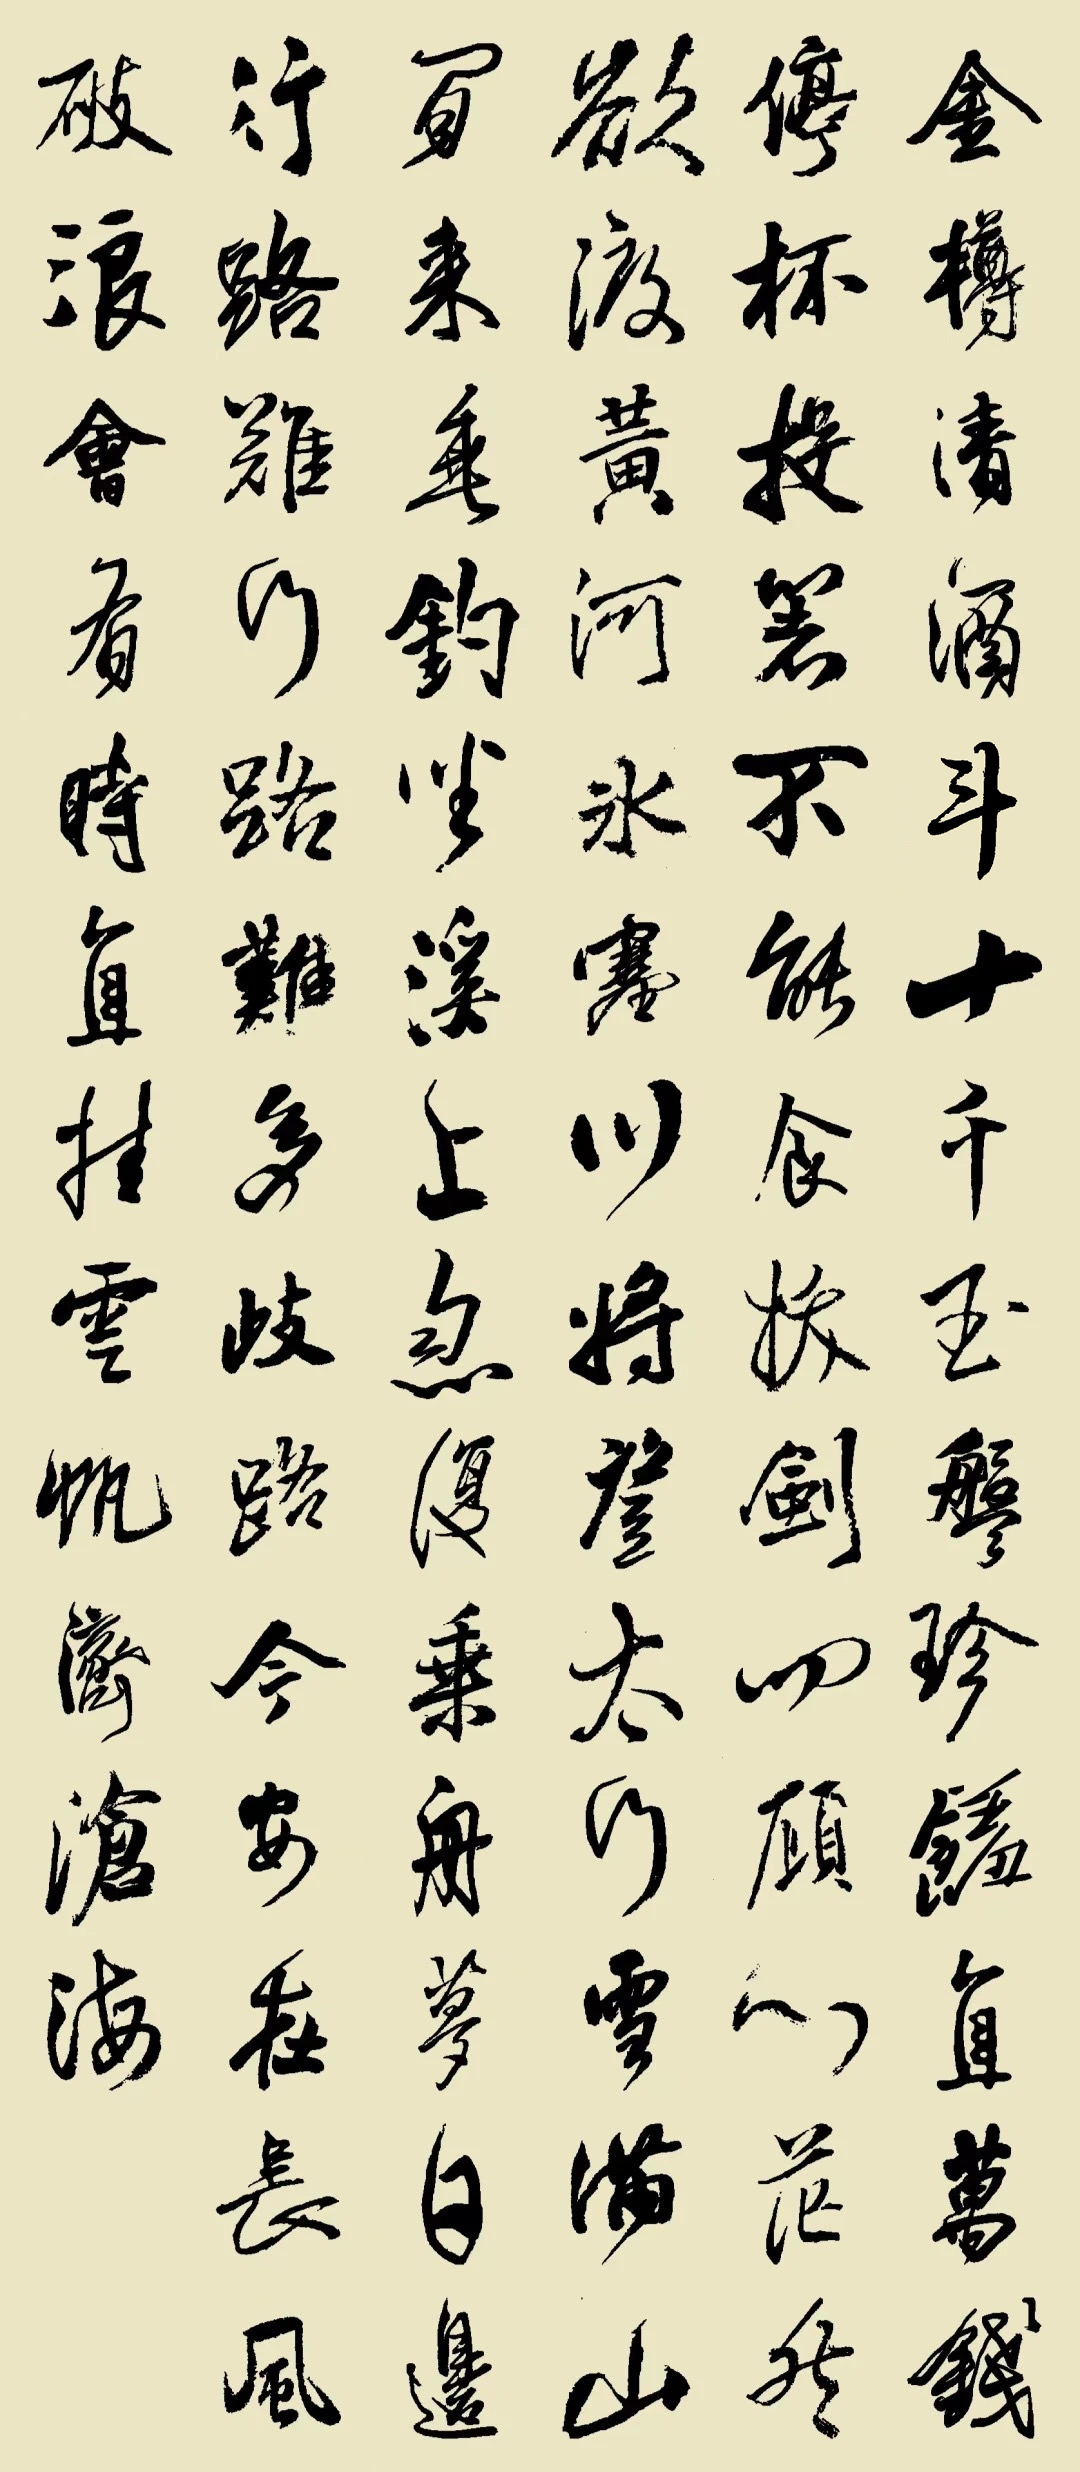 金樽清酒斗十千玉盤珍饈直萬錢
停杯投箸不能食拔劍四顧心茫然
欲渡黃河冰塞川將登太行雪滿山
閒來垂釣坐溪上忽復乘舟夢日邊
行路難行路難多歧路今安在長風
破浪會有時直挂雲帆濟滄海